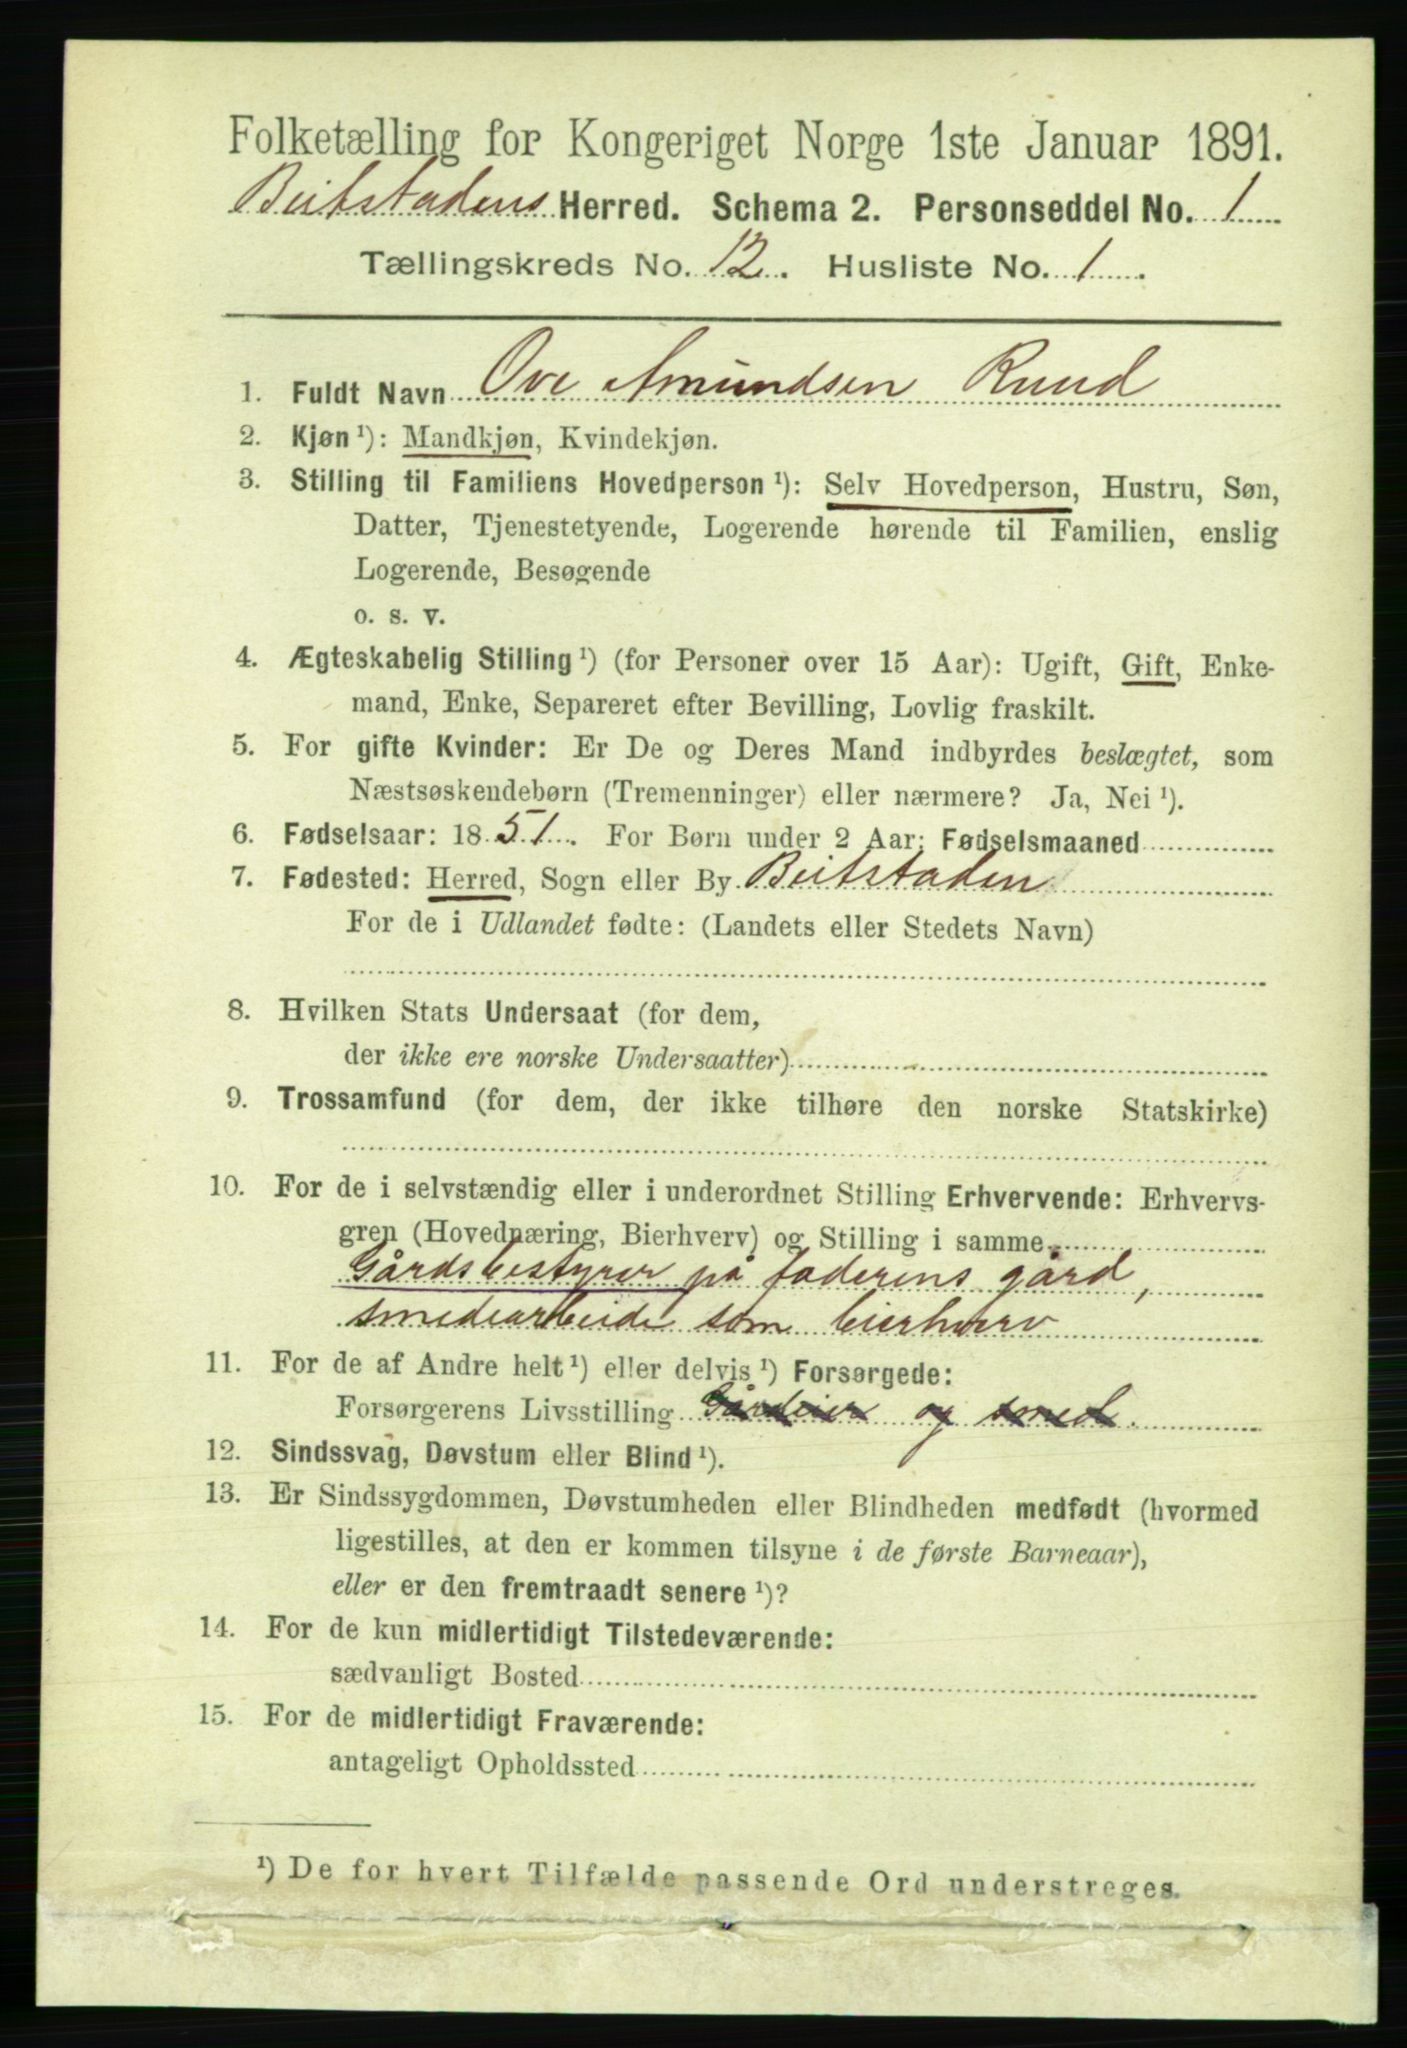 Folketælling for Kongeriget Norge 1ste Januar 1891.
Beitstadens Herred. Schema 2. Personseddel No. 1
Tællingskreds No. 12. Husliste No. 1.
1. Fuldt Navn Ove Amundsen Ruud
2. Kjøn ¹): Mandkjøn, Kvindekjøn.
3. Stilling til Familiens Hovedperson ¹): Selv Hovedperson, Hustru, Søn,
Datter, Tjenestetyende, Logerende hørende til Familien, enslig
Logerende, Besøgende
o. s. v.
4. Ægteskabelig Stilling ¹) (for Personer over 15 Aar): Ugift, Gift, Enke-
mand, Enke, Separeret efter Bevilling, Lovlig fraskilt.
5. For gifte Kvinder: Er De og Deres Mand indbyrdes beslægtet, som
Næstsøskendebørn (Tremenninger) eller nærmere? Ja, Nei ¹).
6. Fødselsaar: 1851. For Børn under 2 Aar: Fødselsmaaned
7. Fødested: Herred, Sogn eller By Beitstaden
For de i Udlandet fødte: (Landets eller Stedets Navn)
8. Hvilken Stats Undersaat (for dem,
der ikke ere norske Undersaatter)
9. Trossamfund (for dem, der ikke tilhøre den norske Statskirke)
10. For de i selvstændig eller i underordnet Stilling Erhvervende: Erhvervs-
gren (Hovednæring, Bierhverv) og Stilling i samme
Gårdsbestyrer på faderens gård,
smedearbeide som bierhverv
11. For de af Andre helt ¹) eller delvis ¹) Forsørgede:
Forsørgerens Livsstilling Gårdeier og smed.
12. Sindssvag, Døvstum eller Blind ¹).
13. Er Sindssygdommen, Døvstumheden eller Blindheden medfødt (hvormed
ligestilles, at den er kommen tilsyne i de første Barneaar),
eller er den fremtraadt senere ¹)?
14. For de kun midlertidigt Tilstedeværende:
sædvanligt Bosted
15. For de midlertidigt Fraværende:
antageligt Opholdssted
¹) De for hvert Tilfælde passende Ord understreges.